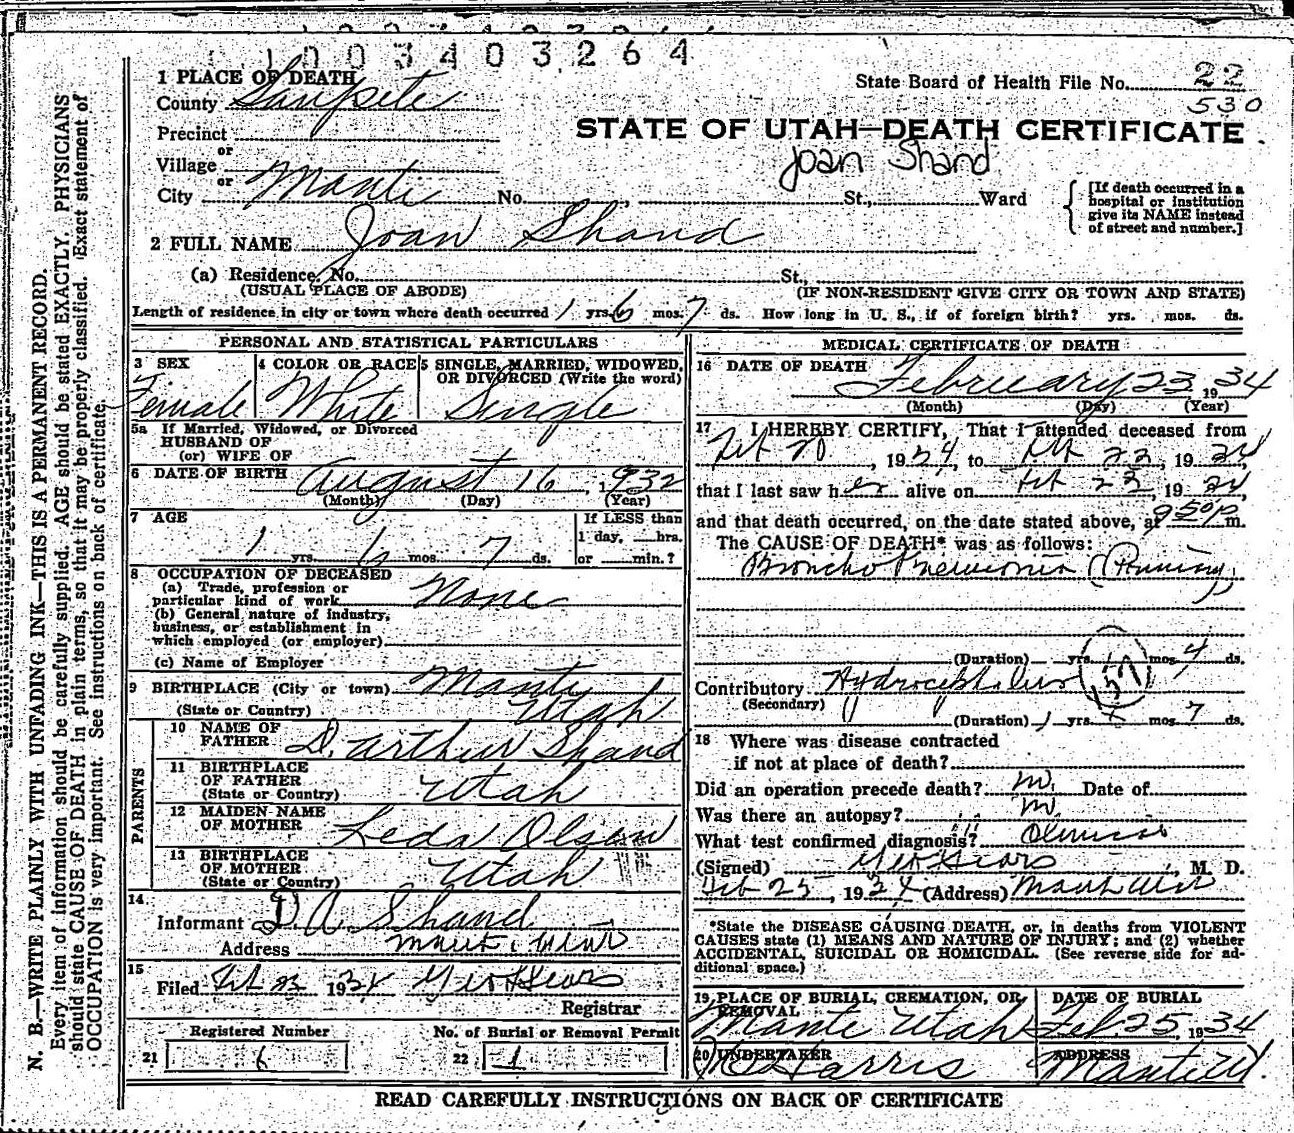 1003403264
1 PLACE OF DEATH
State Board of Health File No. 22
530
County Sanpete
STATE OF UTAH—DEATH CERTIFICATE
Joan Shand
Precinct
or
Village
or
City Manti No. St., Ward
[If death occurred in a
hospital or institution
give its NAME instead
of street and number.]
2 FULL NAME Joan Shand
(a) Residence, No. St.,
(USUAL PLACE OF ABODE) (IF NON-RESIDENT GIVE CITY OR TOWN AND STATE)
Length of residence in city or town where death occurred 1 yrs. 6 mos. 7 ds. How long in U. S., if of foreign birth? yrs. mos. ds.
PERSONAL AND STATISTICAL PARTICULARS
3 SEX 4 COLOR OR RACE 5 SINGLE, MARRIED, WIDOWED,
OR DIVORCED (Write the word)
Female White Single
5a If Married, Widowed, or Divorced
HUSBAND OF
(or) WIFE OF
6 DATE OF BIRTH August 16, 1932
(Month) (Day) (Year)
7 AGE If LESS than
1 day, hrs.
1 yrs. 6 mos. 7 ds. or min.?
8 OCCUPATION OF DECEASED
(a) Trade, profession or
particular kind of work None
(b) General nature of industry,
business, or establishment in
which employed (or employer)
(c) Name of Employer
9 BIRTHPLACE (City or town) Manti
(State or Country) Utah
PARENTS
10 NAME OF
FATHER D. Arthur Shand
11 BIRTHPLACE
OF FATHER
(State or Country) Utah
12 MAIDEN NAME
OF MOTHER Leda Olson
13 BIRTHPLACE
OF MOTHER
(State or Country) Utah
14
Informant D. A. Shand
Address Manti, Utah
15
Filed Feb 23 1934 Geo H Sears
Registrar
Registered Number No. of Burial or Removal Permit
21 6 22 1
MEDICAL CERTIFICATE OF DEATH
16 DATE OF DEATH
February 23 1934
(Month) (Day) (Year)
17 I HEREBY CERTIFY, That I attended deceased from
Feb 20, 1934, to Feb 23, 1934,
that I last saw her alive on Feb 23, 1934,
and that death occurred, on the date stated above, at 9 50 p m.
The CAUSE OF DEATH* was as follows:
Broncho Pneumonia (Primary)
(Duration) yrs. mos. 4 ds.
Contributory Hydrocephilus
(Secondary)
157
(Duration) 1 yrs. 6 mos. 7 ds.
18 Where was disease contracted
if not at place of death?
Did an operation precede death? no. Date of
Was there an autopsy? no
What test confirmed diagnosis? Clinical
(Signed) Geo H Sears, M. D.
Feb 25, 1934 (Address) Manti Utah
*State the DISEASE CAUSING DEATH, or, in deaths from VIOLENT
CAUSES state (1) MEANS AND NATURE OF INJURY; and (2) whether
ACCIDENTAL, SUICIDAL OR HOMICIDAL. (See reverse side for ad-
ditional space.)
19 PLACE OF BURIAL, CREMATION, OR
REMOVAL
DATE OF BURIAL
Manti Utah Feb. 25, 1934
20 UNDERTAKER ADDRESS
Harris Manti U.
READ CAREFULLY INSTRUCTIONS ON BACK OF CERTIFICATE
N. B.—WRITE PLAINLY WITH UNFADING INK—THIS IS A PERMANENT RECORD.
Every item of information should be carefully supplied. AGE should be stated EXACTLY. PHYSICIANS
should state CAUSE OF DEATH in plain terms, so that it may be properly classified. Exact statement of
OCCUPATION is very important. See instructions on back of certificate.